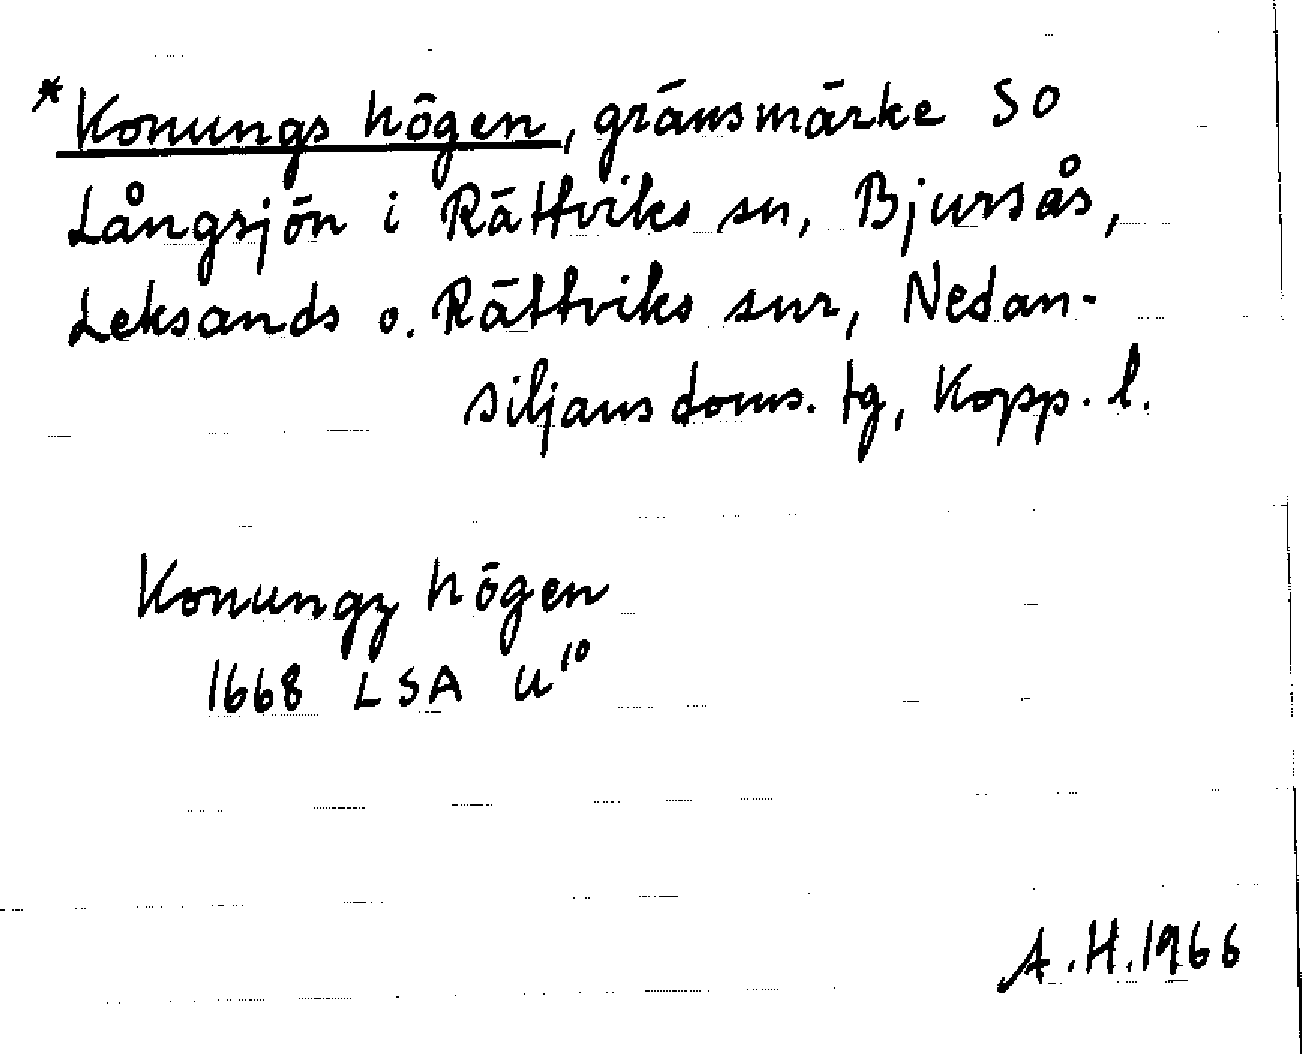 *Konungs högen, gränsmärke SO
Långsjön i Rättviks sn, Bjursås,
Leksands o. Rättviks snr, Nedan-
siljans doms. tg, Kopp. l.
Konungz högen
1668 LSA U¹⁰
A.H.1966